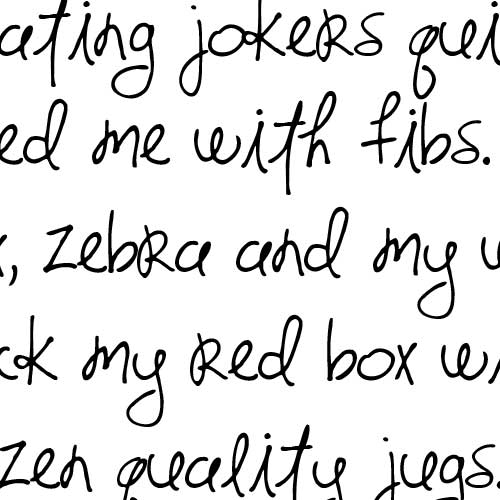 ating jokers qui
ed me with fibs.
x, zebra and my w
ck my red box wi
zen quality jugs